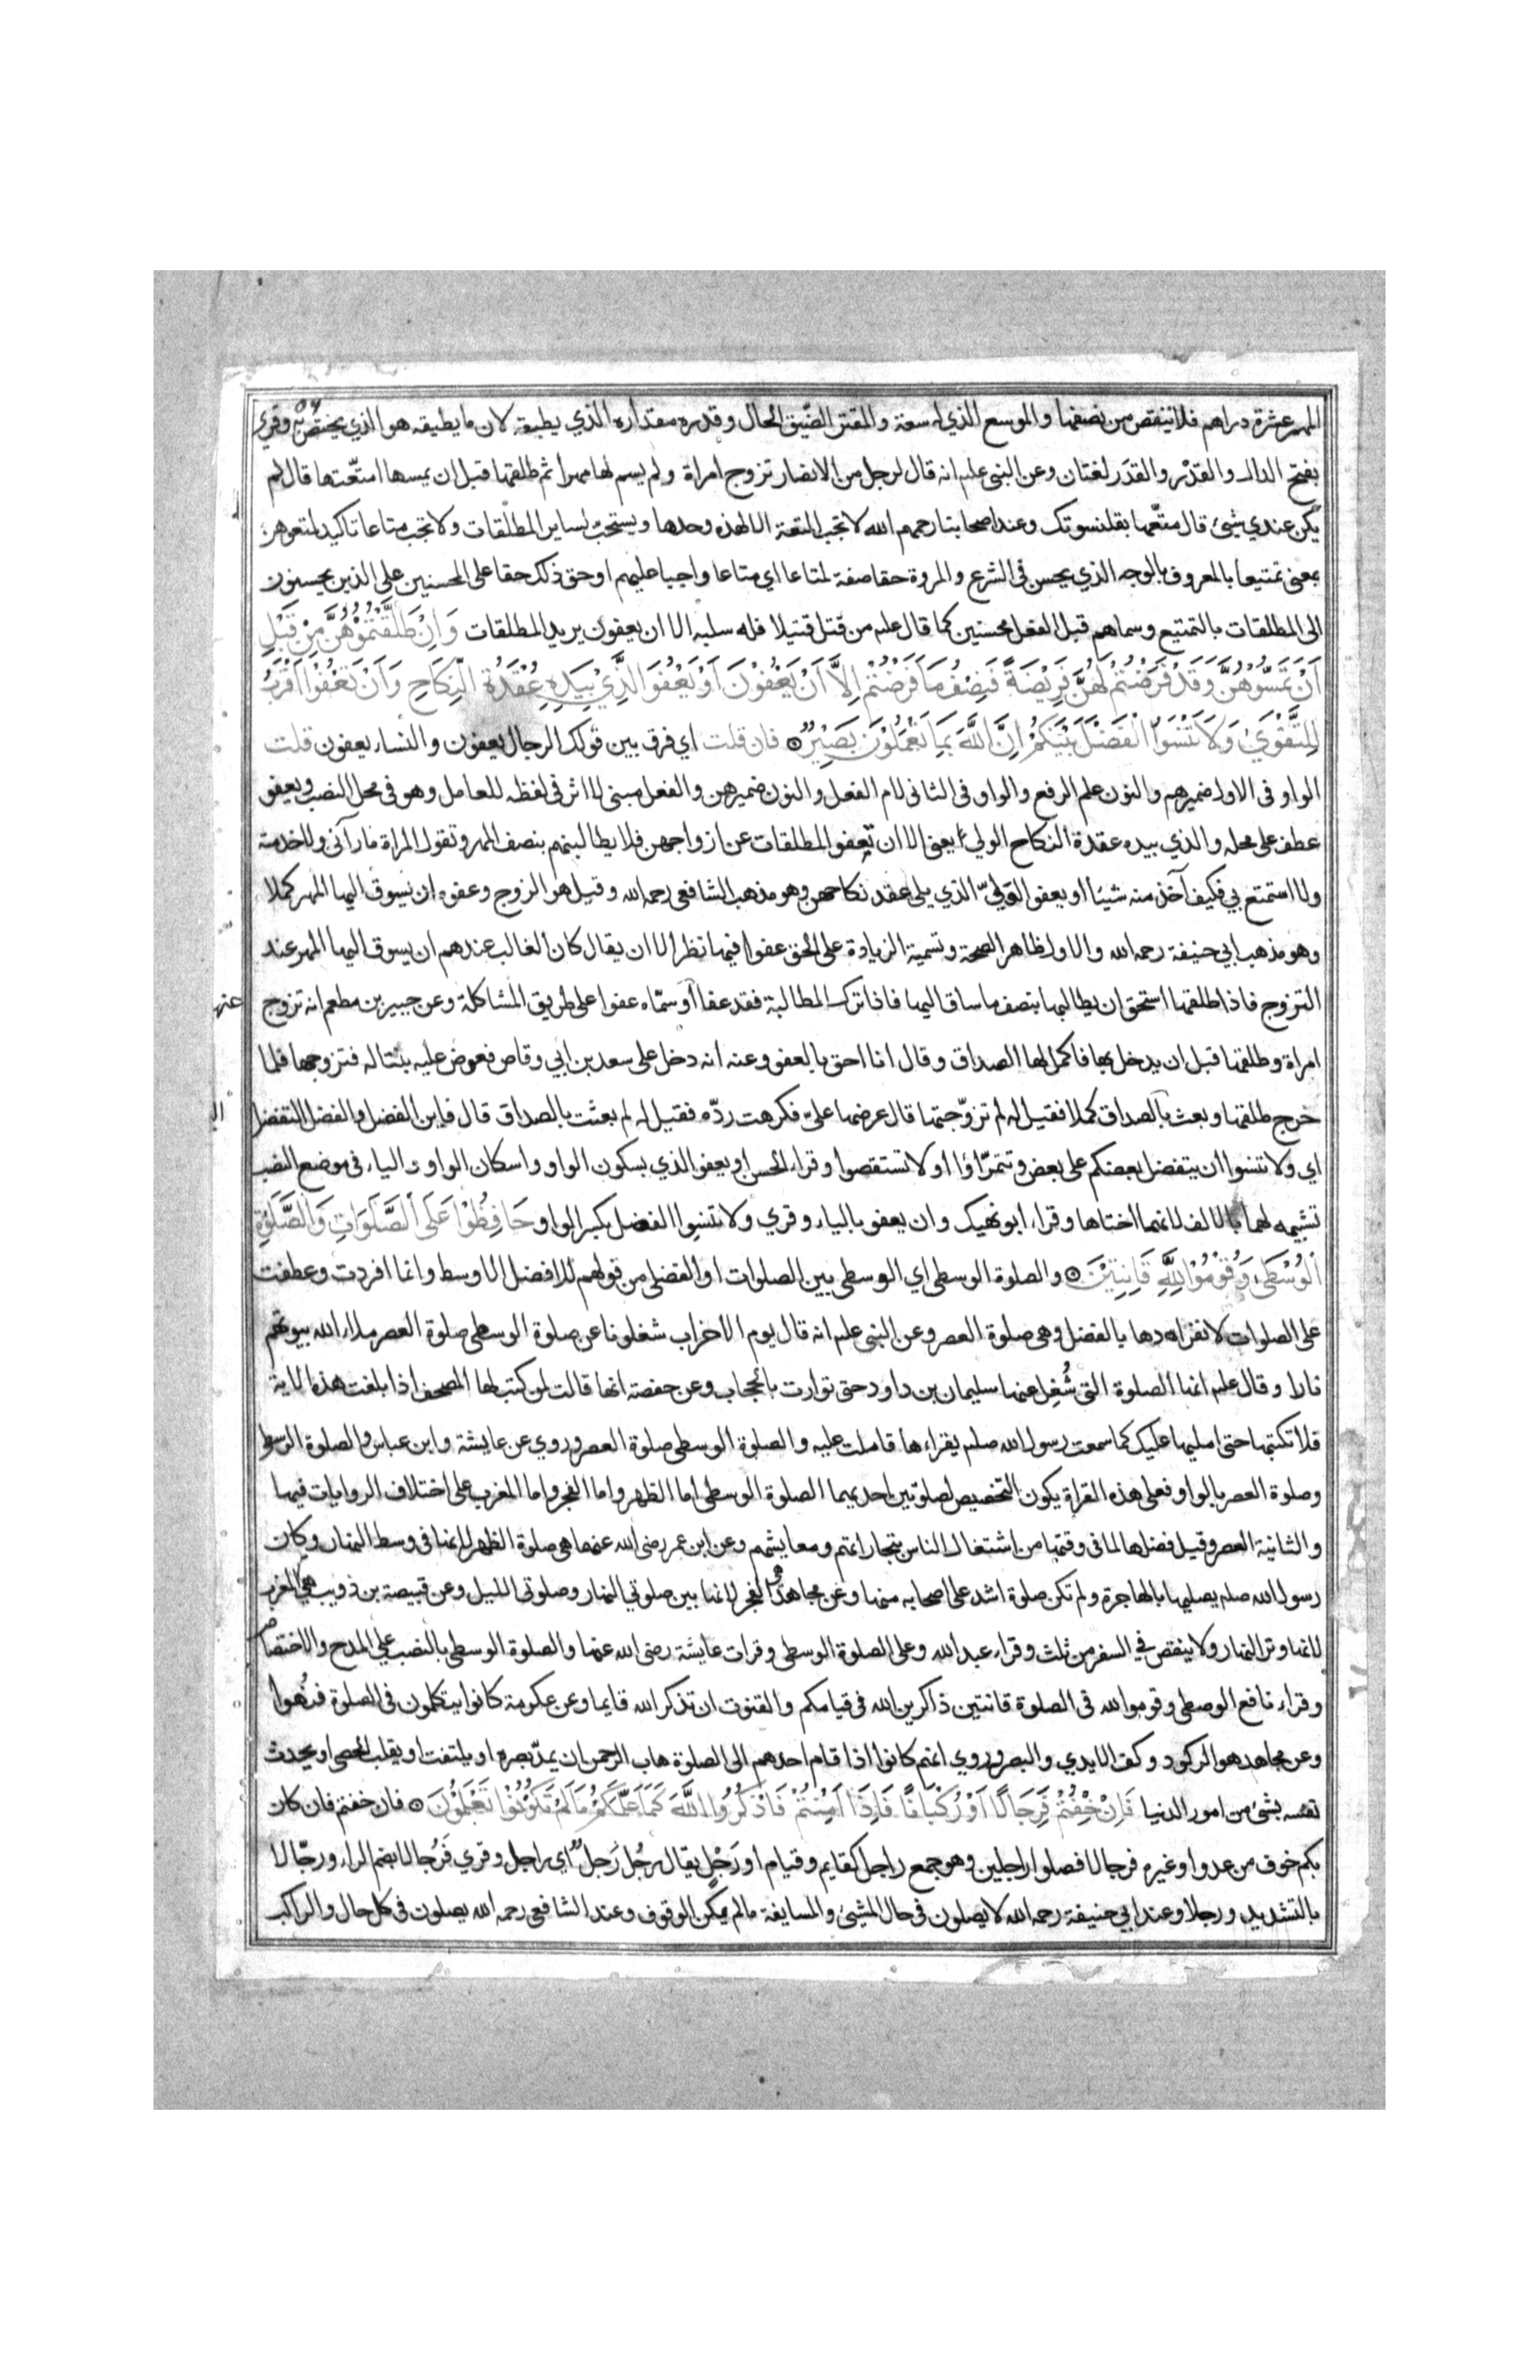 المهر عشرة دراهم فلا تنقص من نصفها والموسع الذي له سعة والمقتر الضّيق الحال وقدره مقداره الذي يطيقه لان ما يطيقه هو الذي يختص به وقرئ
بفتح الدال والقدْر والقدَر لغتان وعن النبى علم انه قال لرجل من الانصار تزوج امراة ولم يسم لها مهرا ثم طلقها قبل ان يمسها امتّعتها قال لم
يكن عندي شئ قال متّعها بقلنسوتك وعند اصحابنا رحمهم الله لا تجب المتعة الا لهذه وحدها ويستحبّ لساير المطلّقات ولا تجب متاعا تاكيد لمتعوهن
بمعنى تمتيعا بالمعروف بالوجه الذي يحسن فى الشرع والمروة حقا صفة لمتاعا اي متاعا واجبا عليهم او حق ذلك حقا على المحسنين على الذين يحسنون
الى المطلقات بالتمتيع وسماهم قبل الفعل محسنين كما قال علم من قتل قتيلا فله سلبه الا ان يعفون يريد المطلقات وَاِنْ طَلَّقْتُمُوْهُنَّ مِنْ قَبْلِ
اَنْ تَمَسُّوْهُنَّ وَقَدْ فَرَضْتُمْ لَهُنَّ فَرِيْضَةً فَنِصْفُ مَا فَرَضْتُمْ اِلَّا اَنْ يَعْفُوْنَ اَوْ يَعْفُوَ الَّذِيْ بِيَدِهِ عُقْدَةُ النِّكَاحِ وَاَنْ تَعْفُوْا اَقْرَبُ
لِلتَّقْوَيٰ وَلَا تَنْسَوُا الْفَضْلَ بَيْنَكُمْ اِنَّ اللَّهَ بِمَا تَعْمَلُوْنَ بَصِيْرٌ ۞ فان قلت اي فرق بين قولك الرجال يعفون والنساء يعفون قلت
الواو فى الاول ضميرهم والنون علم الرفع والواو فى الثانى لام الفعل والنون ضميرهن والفعل مبنى لا اثر فى لفظه للعامل وهو فى محل النصب ويعفو
عطف على محله والذي بيده عقدة النكاح الولي يعنى الا ان تعفو المطلقات عن ازواجهن فلا يطالبنهم بنصف المهر وتقول المراة ما رآنى ولا خدمته
ولا استمتع بي فكيف آخذ منه شيئا او يعفو الولىّ الذي يلى عقد نكاحهن وهو مذهب الشافعى رحمه الله وقيل هو الزوج وعفوه ان يسوق اليها المهر كملا
وهو مذهب ابي حنيفة رحمه الله والاول ظاهر الصحة وتسمية الزيادة على الحق عفوا فيها نظر الا ان يقال كان الغالب عندهم ان يسوق اليها المهر عند
التزوج فاذا طلقها استحق ان يطالبها بنصف ما ساق اليها فاذا ترك المطالبة فقد عفا او سمّاه عفوا على طريق المشاكلة وعن جبير بن مطعم انه تزوج
امراة وطلقها قبل ان يدخل بها فاكمل لها الصداق وقال انا احق بالعفو وعنه انه دخل على سعد بن ابي وقاص فعرض عليه بنتا له فتزوجها فلما
خرج طلقها وبعث بالصداق كملا فقيل له لم تزوّجتها قال عرضها علىّ فكرهت ردّه فقيل له لم بعثت بالصداق قال فاين الفضل والفضل التفضل
اي ولا تنسوا ان يتفضل بعضكم على بعض وتتمرّاؤا او لا تستقصوا وقراء الحسن او يعفو الذي بسكون الواو واسكان الواو والياء فى موضع النصب
تشبيه لهما بالالف لانهما اختاها وقراء ابو نهيك وان يعفو بالياء وقري ولا تنسِوا الفضل بكسر الواو حَافِظُوْا عَلَى الصَّلَوَاتِ وَالصَّلَوٰةِ
الْوُسْطَى وَقُوْمُوْا لِلَّهِ قَانِتِيْنَ ۞ والصلوة الوسطى اي الوسطى بين الصلوات او الفضلى من قولهم للافضل الاوسط وانما افردت وعطفت
على الصلوات لانفرادها بالفضل وهى صلوة العصر وعن النبى علم انه قال يوم الاحزاب شغلونا عن صلوة الوسطى صلوة العصر ملاء الله بيوتهم
نارا وقال علم انها الصلوة التى شُغِل عنها سليمان بن داود حتى توارت بالحجاب وعن حفصة انها قالت لمن كتب لها المصحف اذا بلغت هذه الاية
فلا تكتبها حتى امليها عليك كما سمعت رسول الله صلم يقراءها فاملت عليه والصلوة الوسطى صلوة العصر وروي عن عايشة وابن عباس والصلوة الوسطى
وصلوة العصر بالواو فعلى هذه القراة يكون التخصيص لصلوتين احديهما الصلوة الوسطى اما الظهر واما الفجر واما المغرب على اختلاف الروايات فيها
والثانية العصر وقيل فضلها لما فى وقتها من اشتغال الناس بتجاراتهم ومعايشهم وعن ابن عمر رضى الله عنهما هى صلوة الظهر لانها فى وسط النهار وكان
رسول الله صلم يصليها بالهاجرة ولم تكن صلوة اشد على اصحابه منها وعن مجاهد هى الفجر لانها بين صلوتي النهار وصلوتى الليل وعن قبيصة بن ذويب هى المغرب
لانها وتر النهار ولا ينقص في السفر من ثلث وقراء عبد الله وعلى الصلوة الوسطى وقرات عايشة رضى الله عنها والصلوة الوسطى بالنصب على المدح والاختصاص
وقراء نافع الوصطى وقوموا لله فى الصلوة قانتين ذاكرين لله فى قيامكم والقنوت ان تذكر الله قايما وعن عكرمة كانوا يتكلمون فى الصلوة فنُهوا
وعن مجاهد هو الركود وكف الايدي والبصر وروي انهم كانوا اذا قام احدهم الى الصلوة هاب الرحمن ان يمدّ بصره او يلتفت او يقلب الحصى او يحدث
نفسه بشئ من امور الدنيا فَاِنْ خِفْتُمْ فَرِجَالًا اَوْ رُكْبَانًا فَاِذَا اَمِنْتُمْ فَاذْكُرُوا اللَّهَ كَمَا عَلَّمَكُمْ مَا لَمْ تَكُوْنُوْا تَعْلَمُوْنَ ۞ فان خفتم فان كان
بكم خوف من عدو او غيره فرجالا فصلوا راجلين وهو جمع راجل كقايم وقيام او رَجْلٍ يقال رجُل رَجلٌ اي راجل وقري فَرُجالا بضم الراء ورجّالا
بالتشديد ورجلا وعند ابي حنيفة رحمه الله لا يصلون فى حال المشئ والمسايفة مالم يمكن الوقوف وعند الشافعى رحمه الله يصلون فى كل حال والراكب